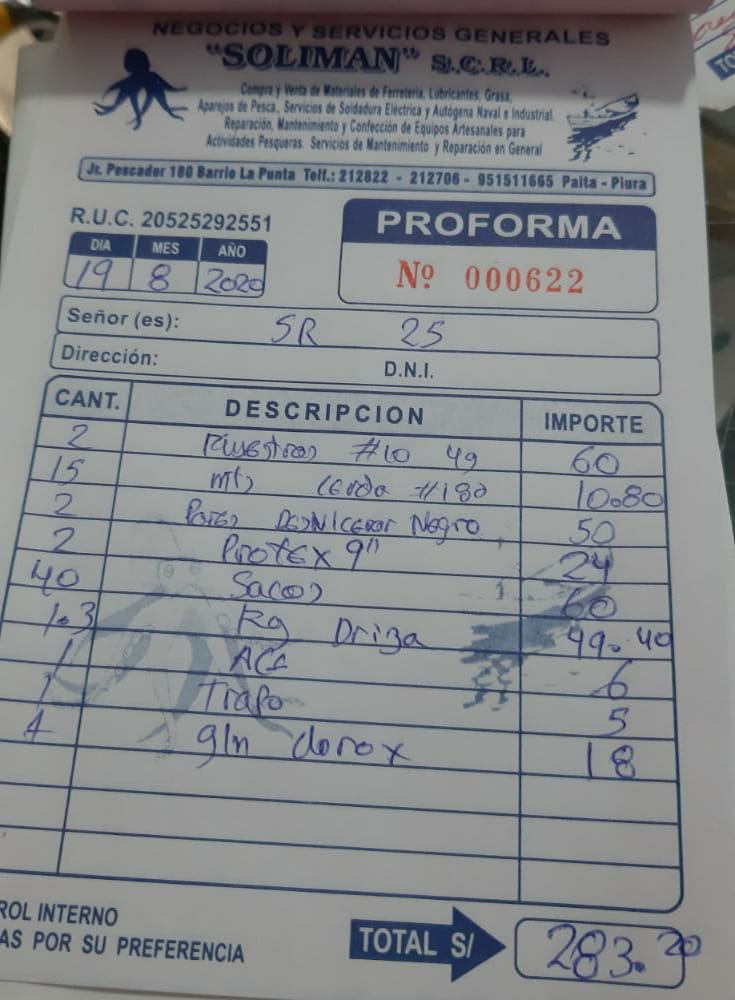 NEGOCIOS Y SERVICIOS GENERALES
"SOLIMAN" S.C.R.L.
Compra y Venta de Materiales de Ferretería, Lubricantes, Grasa,
Aparejos de Pesca, Servicios de Soldadura Eléctrica y Autógena Naval e Industrial.
Reparación, Mantenimiento y Confección de Equipos Artesanales para
Actividades Pesqueras. Servicios de Mantenimiento y Reparación en General
Jr. Pescador 180 Barrio La Punta Telf.: 212822 - 212706 - 951511665 Paita - Piura
R.U.C. 20525292551
PROFORMA
Nº 000622
DIA MES AÑO
19 8 2020
Señor (es): SR 25
Dirección: D.N.I.
CANT. DESCRIPCION IMPORTE
2 #10 49 60
15 mts #180 10.80
2 Pares Negro 50
2 Protex 9" 24
40 Sacos 60
1.3 Kg Driza 49.40
1 6
1 Trapo 5
gln clorox 18
ROL INTERNO
AS POR SU PREFERENCIA
TOTAL S/ 283.20